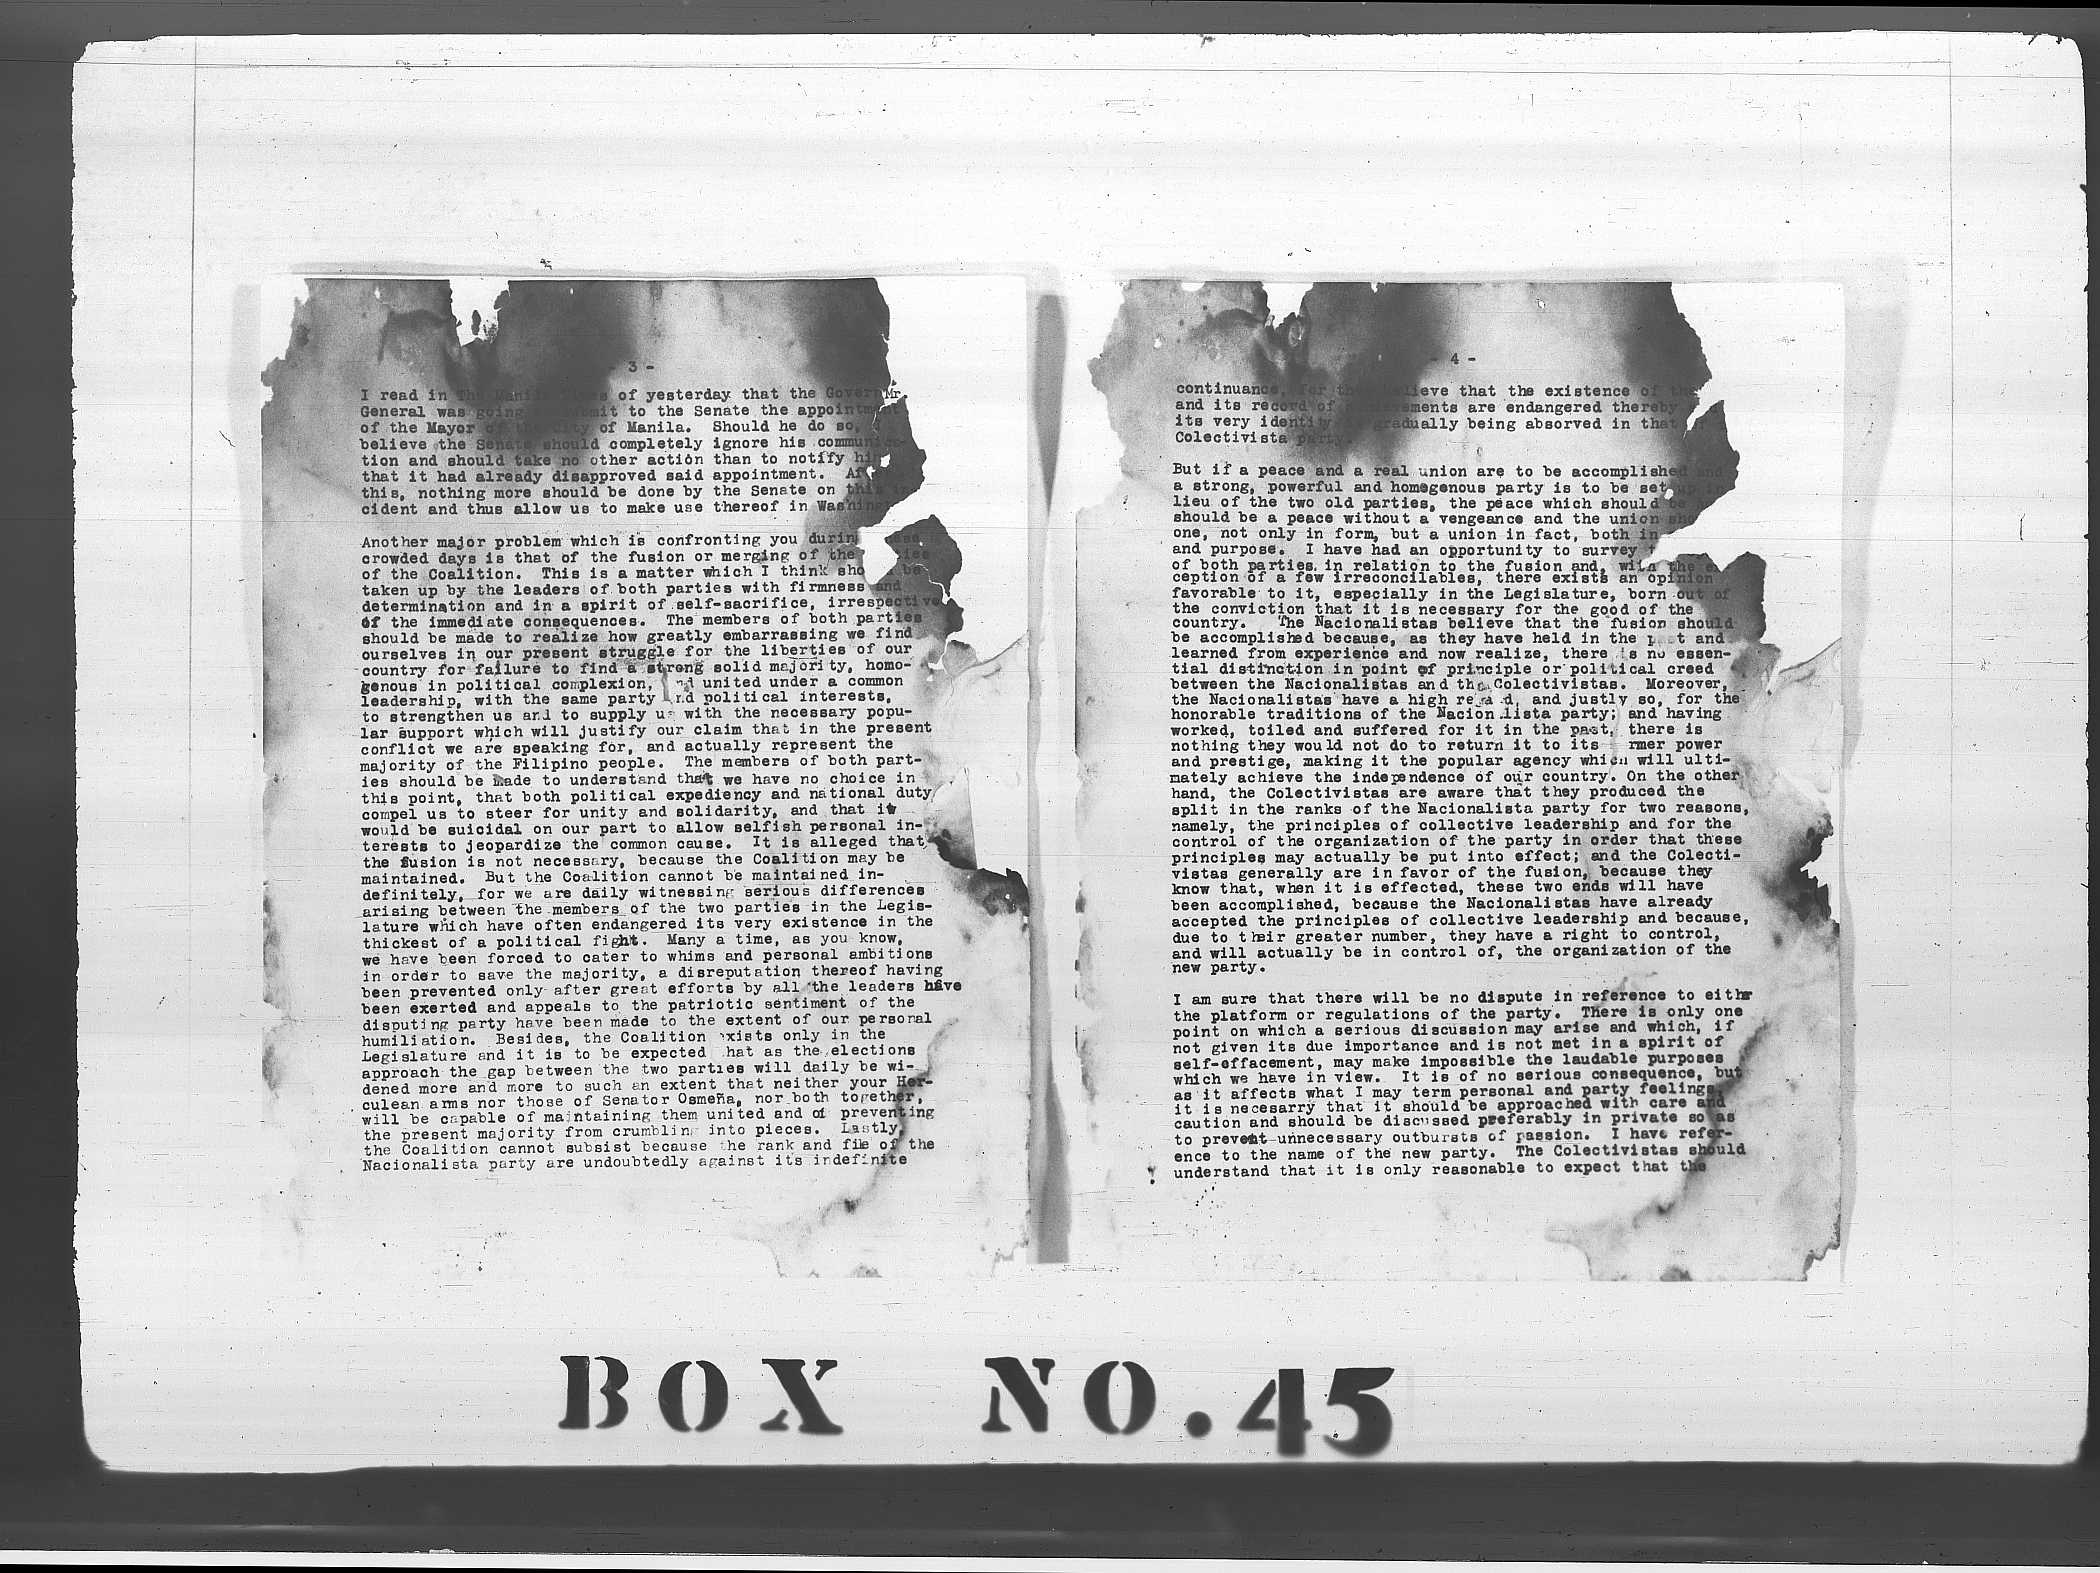 - 3 -
I read in The Manila Times of yesterday that the Govern Mr.
General was going to submit to the Senate the appointment
of the Mayor of the City of Manila. Should he do so, I
believe the Senate should completely ignore his communica-
tion and should take no other action than to notify him
that it had already disapproved said appointment. Af
this, nothing more should be done by the Senate on this in
cident and thus allow us to make use thereof in Washing
Another major problem which is confronting you durin
crowded days is that of the fusion or merging of the
of the Coalition. This is a matter which I think sho be
taken up by the leaders of both parties with firmness and
determination and in a spirit of self-sacrifice, irrespective
of the immediate consequences. The members of both parties
should be made to realize how greatly embarrassing we find
ourselves in our present struggle for the liberties of our
country for failure to find a strong solid majority, homo-
genous in political complexion, and united under a common
leadership, with the same party and political interests,
to strengthen us and to supply us with the necessary popu-
lar support which will justify our claim that in the present
conflict we are speaking for, and actually represent the
majority of the Filipino people. The members of both part-
ies should be made to understand that we have no choice in
this point, that both political expediency and national duty
compel us to steer for unity and solidarity, and that it
would be suicidal on our part to allow selfish personal in-
terests to jeopardize the common cause. It is alleged that
the fusion is not necessary, because the Coalition may be
maintained. But the Coalition cannot be maintained in-
definitely, for we are daily witnessing serious differences
arising between the members of the two parties in the Legis-
lature which have often endangered its very existence in the
thickest of a political fight. Many a time, as you know,
we have been forced to cater to whims and personal ambitions
in order to save the majority, a disreputation thereof having
been prevented only after great efforts by all the leaders have
been exerted and appeals to the patriotic sentiment of the
disputing party have been made to the extent of our personal
humiliation. Besides, the Coalition exists only in the
Legislature and it is to be expected that as the elections
approach the gap between the two parties will daily be wi-
dened more and more to such an extent that neither your Her-
culean arms nor those of Senator Osmeña, nor both together,
will be capable of maintaining them united and of preventing
the present majority from crumbling into pieces. Lastly,
the Coalition cannot subsist because the rank and file of the
Nacionalista party are undoubtedly against its indefinite
- 4 -
continuance, for they believe that the existence of the
and its record of achievements are endangered thereby
its very identity gradually being absorved in that of
Colectivista party.
But if a peace and a real union are to be accomplished and
a strong, powerful and homogenous party is to be set up in
lieu of the two old parties, the peace which should be
should be a peace without a vengeance and the union sho
one, not only in form, but a union in fact, both in
and purpose. I have had an opportunity to survey
of both parties in relation to the fusion and, with the ex
ception of a few irreconcilables, there exists an opinion
favorable to it, especially in the Legislature, born out of
the conviction that it is necessary for the good of the
country. The Nacionalistas believe that the fusion should
be accomplished because, as they have held in the past and
learned from experience and now realize, there is no essen-
tial distinction in point of principle or political creed
between the Nacionalistas and the Colectivistas. Moreover,
the Nacionalistas have a high regard, and justly so, for the
honorable traditions of the Nacionalista party; and having
worked, toiled and suffered for it in the past, there is
nothing they would not do to return it to its former power
and prestige, making it the popular agency which will ulti-
mately achieve the independence of our country. On the other
hand, the Colectivistas are aware that they produced the
split in the ranks of the Nacionalista party for two reasons,
namely, the principles of collective leadership and for the
control of the organization of the party in order that these
principles may actually be put into effect; and the Colecti-
vistas generally are in favor of the fusion, because they
know that, when it is effected, these two ends will have
been accomplished, because the Nacionalistas have already
accepted the principles of collective leadership and because,
due to their greater number, they have a right to control,
and will actually be in control of, the organization of the
new party.
I am sure that there will be no dispute in reference to either
the platform or regulations of the party. There is only one
point on which a serious discussion may arise and which, if
not given its due importance and is not met in a spirit of
self-effacement, may make impossible the laudable purposes
which we have in view. It is of no serious consequence, but
as it affects what I may term personal and party feelings,
it is necesarry that it should be approached with care and
caution and should be discussed preferably in private so as
to prevent unnecessary outbursts of passion. I have refer-
ence to the name of the new party. The Colectivistas should
understand that it is only reasonable to expect that the
BOX NO. 45